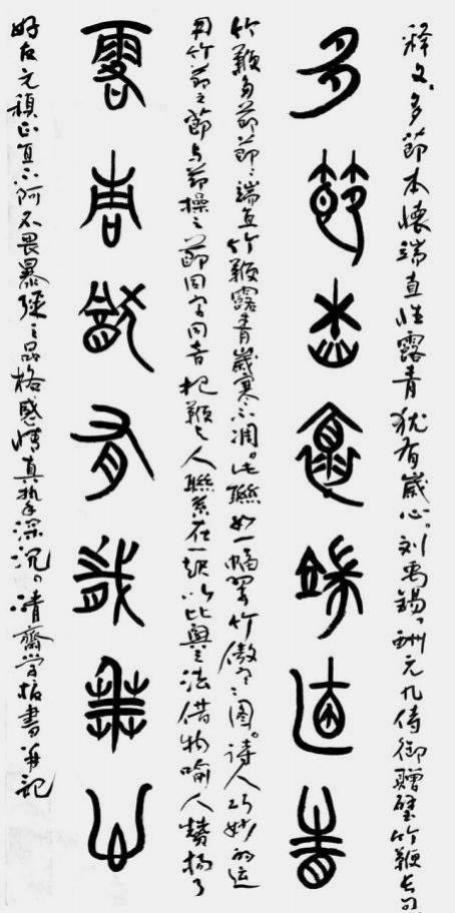 释文、多節本懷端直性露青犹有歲心。刘禹錫、酬元九侍御贈璧竹鞭長句
多節本懷端直性
竹鞭多節節節端直竹鞭露青歲寒不凋。此聯如一幅翠竹傲寒图。诗人巧妙的运
用竹節之節与節操之節同字同音把鞭与人聯系在一起以比興之法借物喻人赞揚了
露青犹有歲寒心
好友元稹正直不阿不畏暴强之品格感情真挚深沉。清齋学書并記